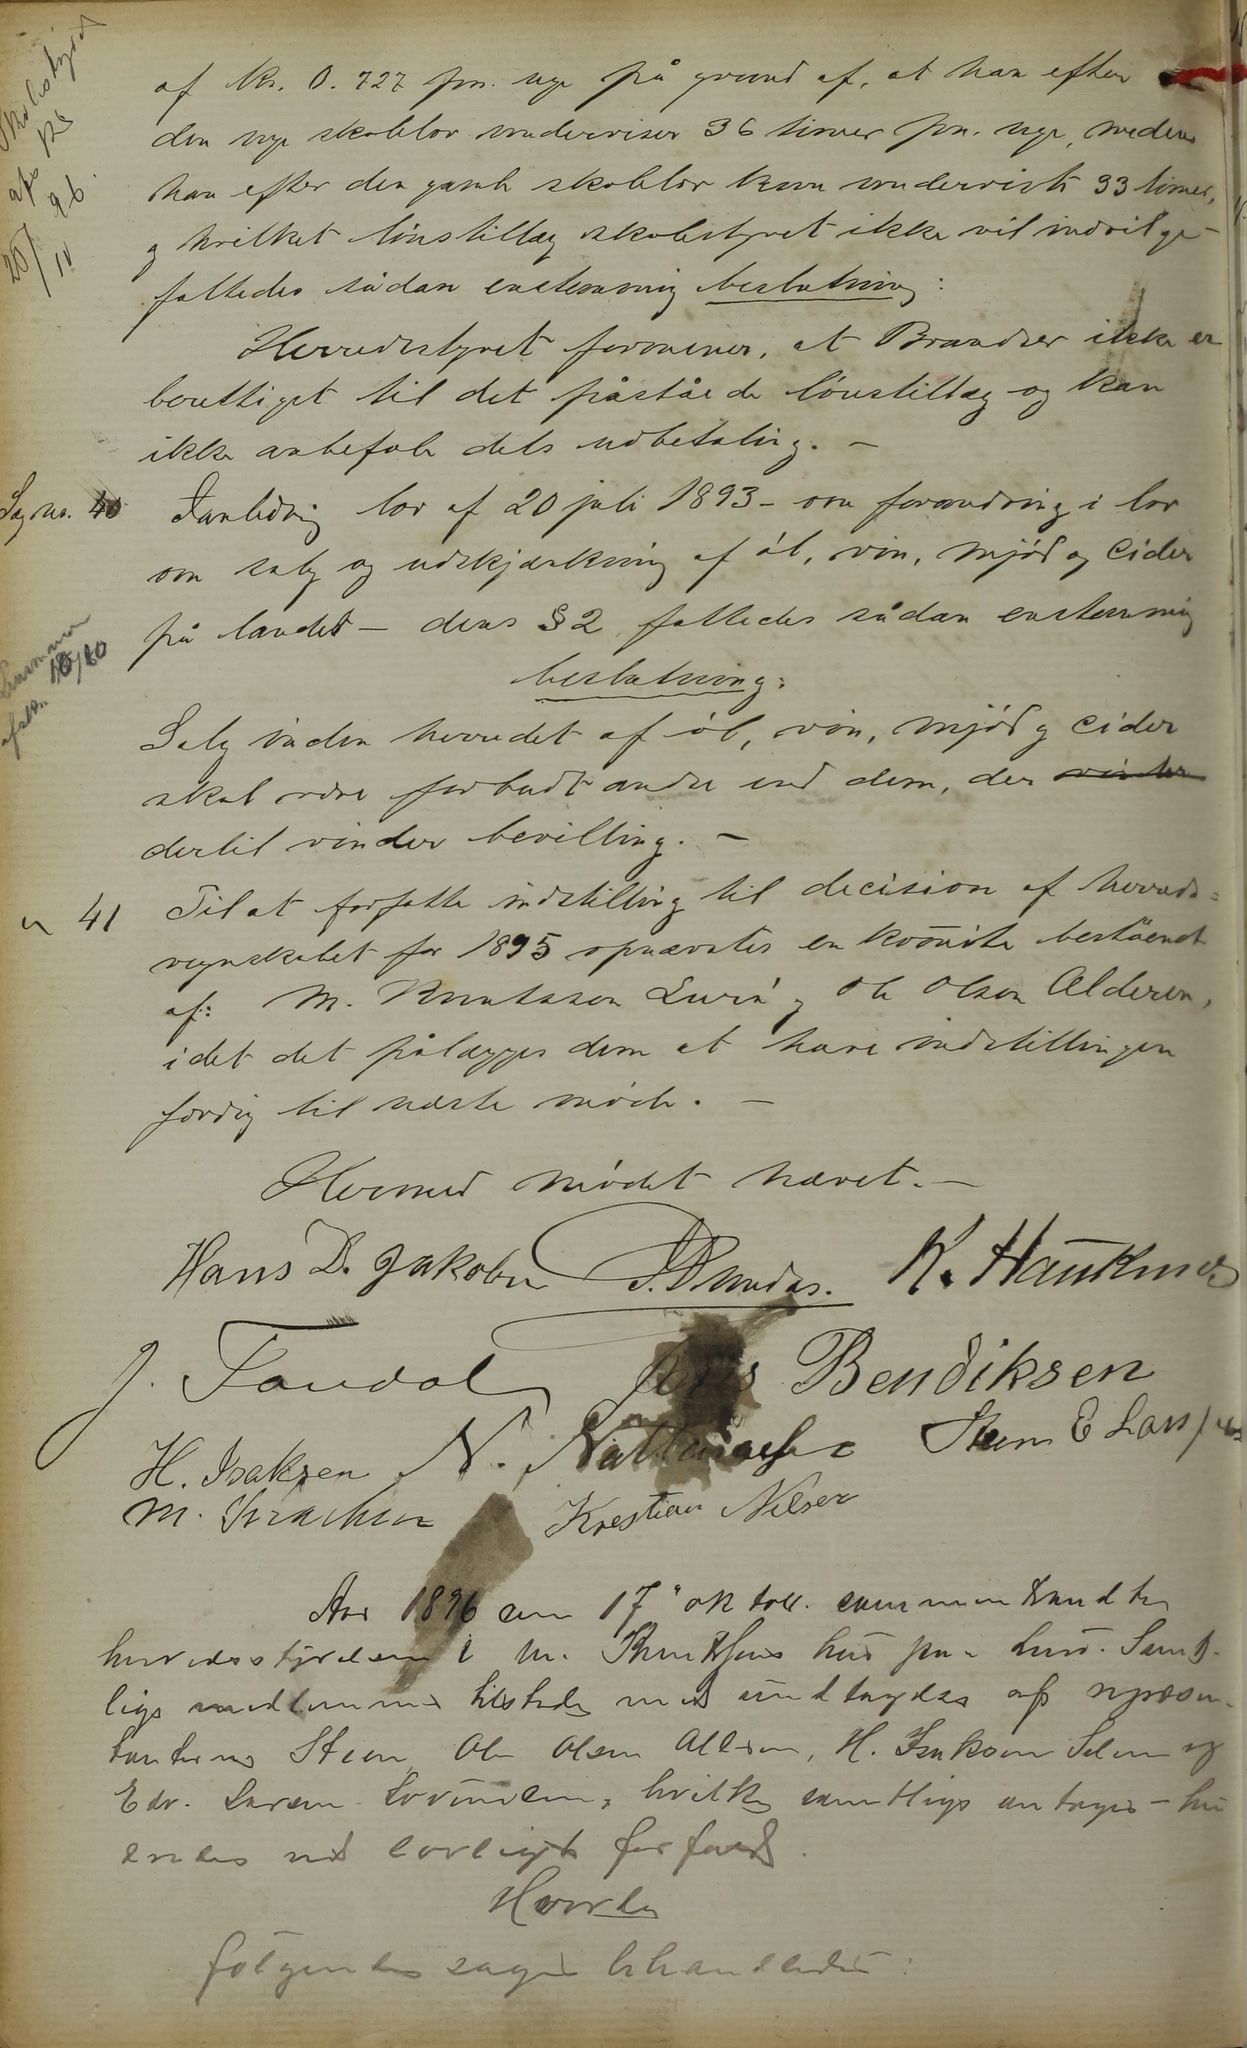 af kr. 0.727 pr. uge på grund af, at han efter
den nye skolelov underviser 36 timer pr. uge, medens
han efter den gamle skolelov kun underviste 33 timer,
og hvilket lönstillæg skolestyret ikke vil indvilge –
fattedes sådan enstemmig beslutning:
Herredsstyret formener, at Brandser ikke er
berettiget til det påståede lönstillæg og kan
ikke anbefale dets udbetaling. –
Sag no. 40 I anledning lov af 20 juli 1893 – om forandring i lov
om salg og udskjænkning af öl, vin, mjöd og cider
på landet – dens § 2 fattedes sådan enstemmig
beslutning:
Salg inden herredet af öl, vin, mjöd og cider
skal være forbudt andre end dem, der vinder
dertil vinder bevilling. –
" 41 Til at forfatte indstilling til decision af herreds=
regnskabet for 1895 opnævntes en komite bestående
af: M. Knutsson Lurö og Ole Olsen Alderen,
idet det pålægges dem at have indstillingen
færdig til næste möde. –
Hermed mödet hævet. –
Hans D. Jakobsen
J. Bendiksen
H. Isaksen
Kristian Nilsen
Aar 1896 den 17 oktob. sammentraadte
herredsstyrelsen i M. Knutsens hus paa Lurö. Samt-
lige medlemmer tilstede med undtagelse af repræsen-
tanterne Steen, Ole Olsen Alderen, H. Isaksen Selsen og
Edv. Larsen Lovunden, hvilke samtlige antages
ved lovligt forfald.
Hvorda
følgende sager behandledes:
Skolestyret
20/10 96
Lensmanden